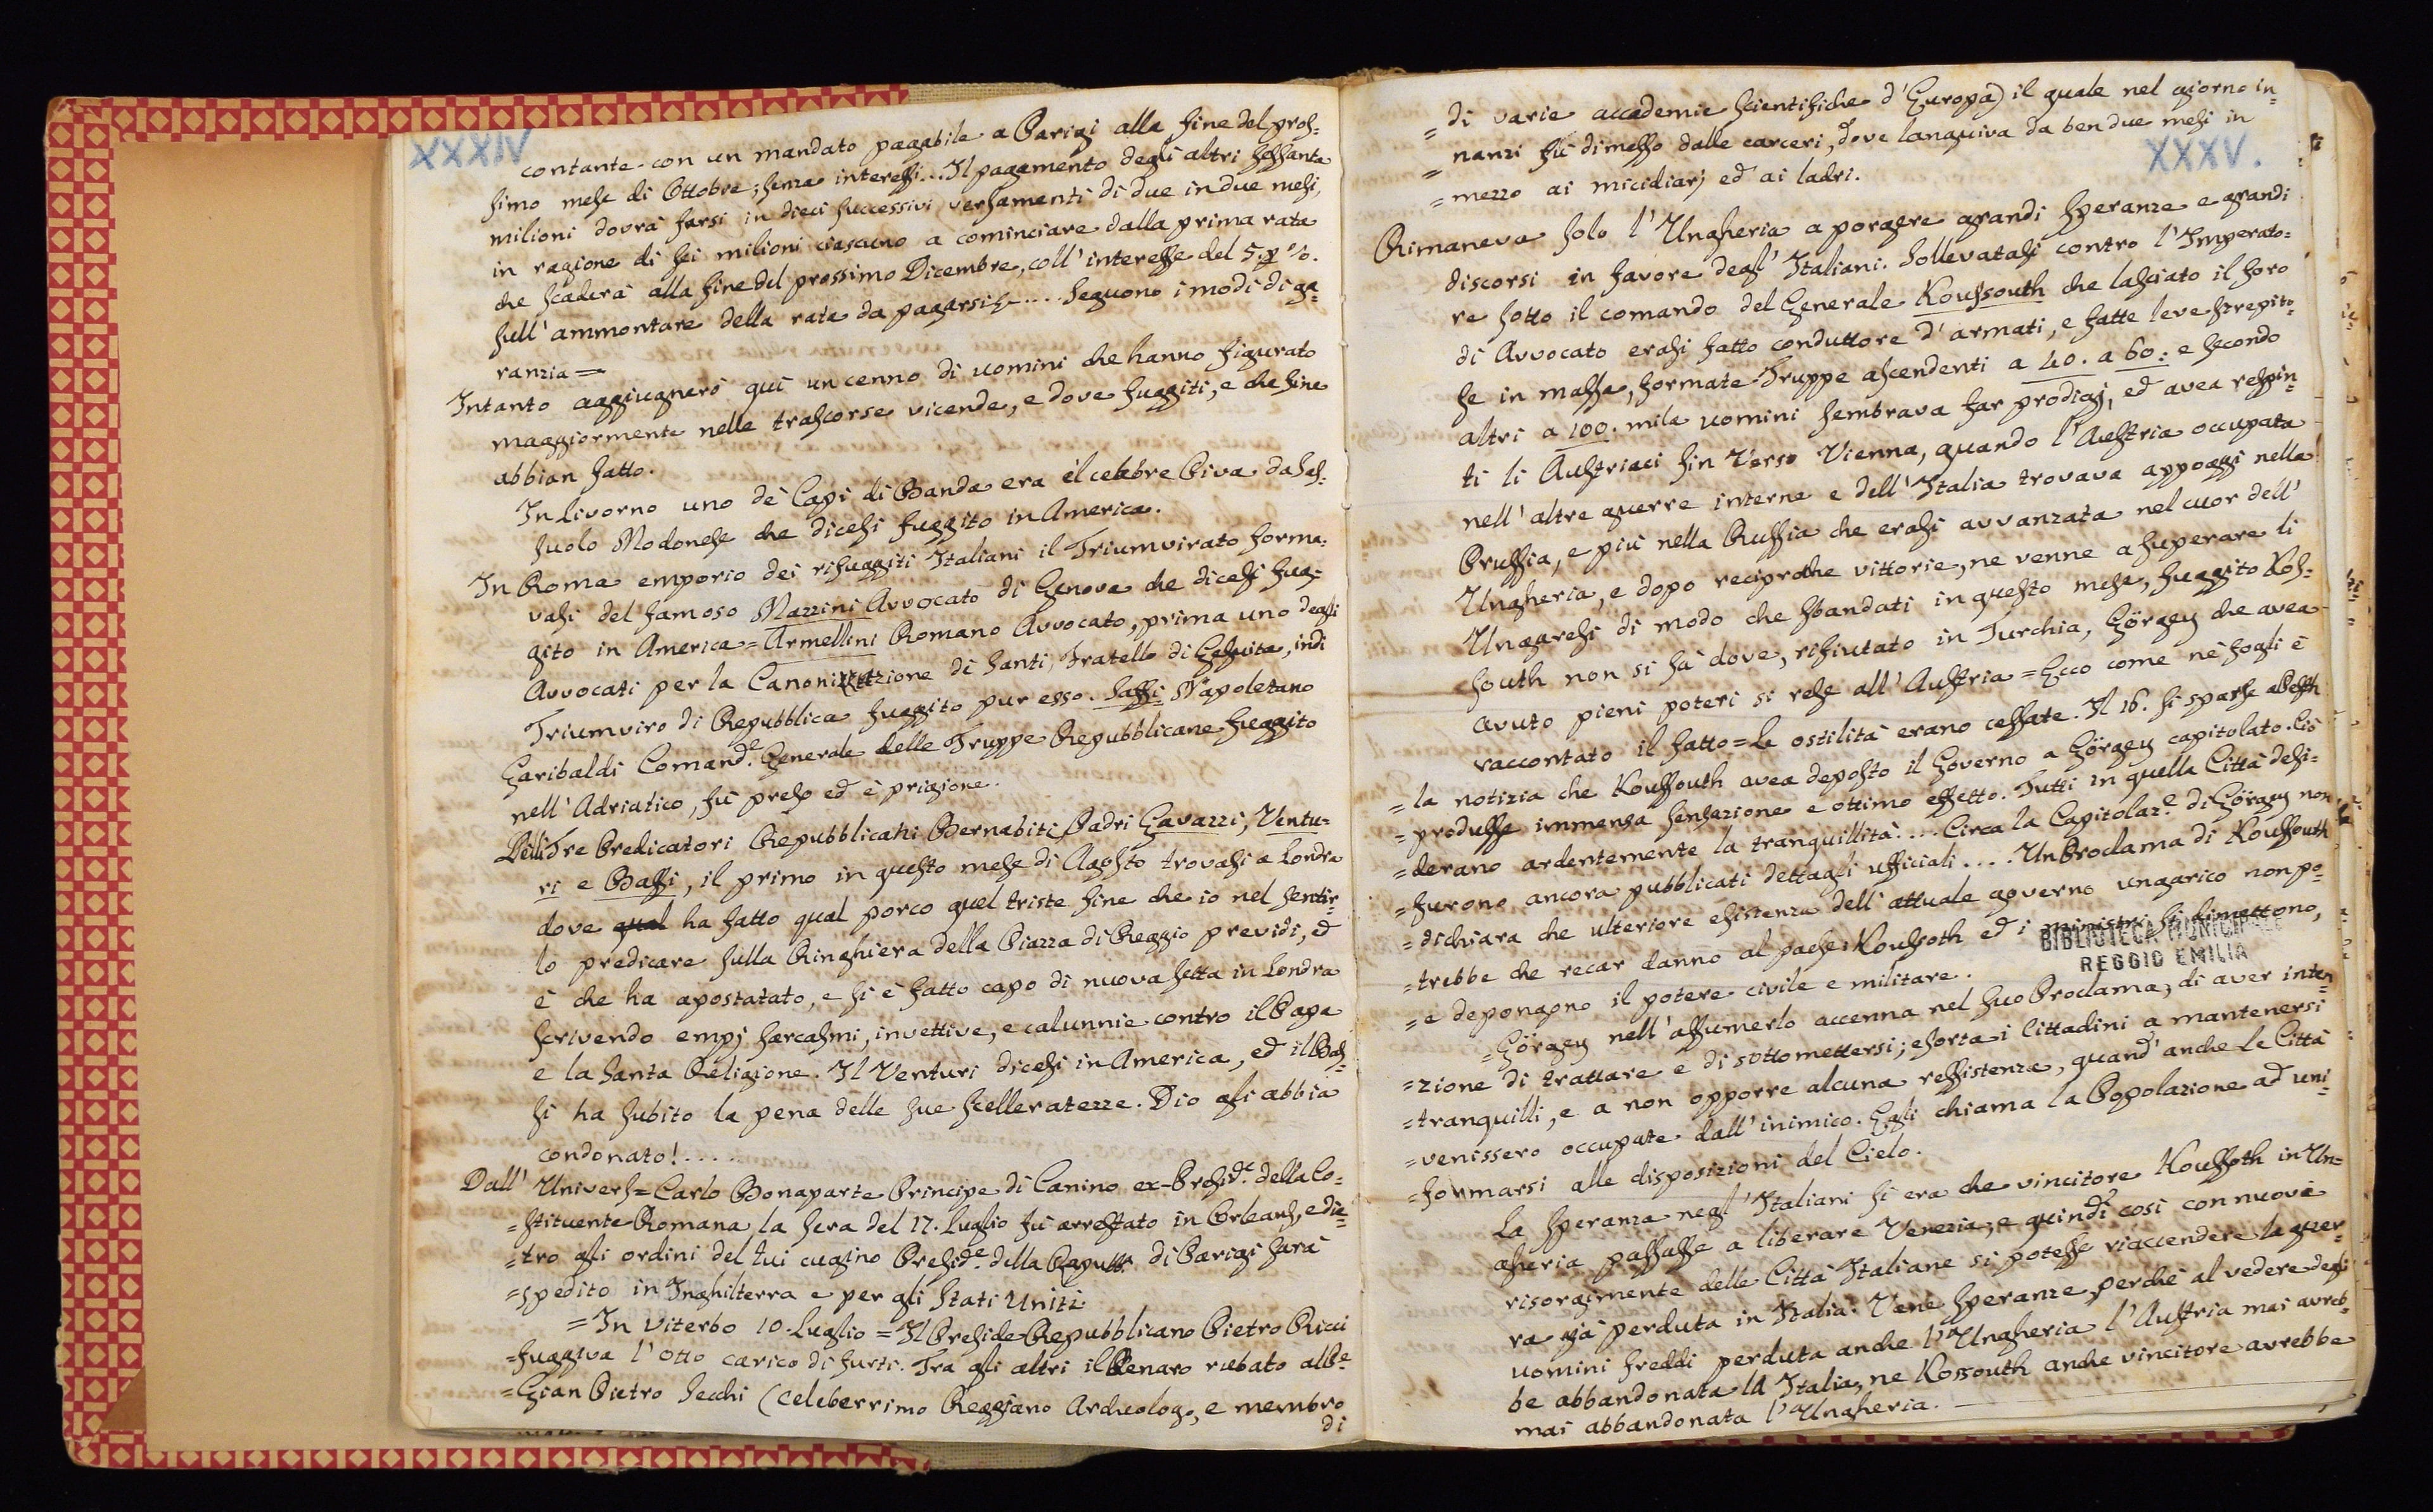 XXXIV
contante con un mandato pagabile a Parigi alla fine del pros=
simo mese di Ottobre; senza interessi... Il pagamento degli altri sessanta
milioni dovrà farsi in dieci successivi versamenti di due in due mesi,
in ragione di sei milioni ciascuno a cominciare dalla prima rata
che scaderà alla fine del prossimo Dicembre, coll'interesse del 5. p %.
sull'ammontare della rata da pagarsi .... Seguono i modi di ga=
ranzia =
Intanto aggiugnerò quì un cenno di uomini che hanno figurato
maggiormente nelle trascorse vicende, e dove fuggiti, e che fine
abbian fatto.
In Livorno uno dè Capi di Banda era il celebre Piva da Sas=
suolo Modonese che dicesi fuggito in America.
In Roma emporio dei rifuggiti Italiani il Triumvirato forma=
vasi del famoso Mazzini Avvocato di Genova che dicesi fug=
gito in America = Armellini Romano Avvocato, prima uno degli
Avvocati per la Canonizzazione di Santi, Fratello di Gesuita, indi
Triumviro di Repubblica fuggito pur esso. Saffi Napoletano
Garibaldi Comand.e Generale delle Truppe Repubblicane fuggito
nell'Adriatico, fù preso ed è prigione.
Delli Tre Predicatori Repubblicani Bernabiti Padri Gavazzi, Ventu=
ri e Bassi, il primo in questo mese di Agosto trovasi a Londra
dove qual ha fatto qual porco quel triste fine che io nel sentir=
lo predicare sulla Ringhiera della Piazza di Reggio previdi, ed
è che ha apostatato, e si è fatto capo di nuova setta in Londra
scrivendo empj sarcasmi, invettive, e calunnie contro il Papa
e la Santa Religione. Il Venturi dicesi in America, ed il Bas=
si ha subito la pena delle sue scelleratezze. Dio gli abbia
condonato! ....
Dall' Univers = Carlo Bonaparte Principe di Canino ex-Presid.e della Co=
=stituente Romana la sera del 17. Luglio fù arrestato in Orleans, e die=
=tro gli ordini del lui cugino Presid.e della Repubb.a di Parigi sarà
=spedito in Inghilterra e per gli Stati Uniti
=In Viterbo 10. Luglio = Il Preside Repubblicano Pietro Ricci
=fuggiva l'Otto carico di furti. Tra gli altri il Denaro rubato al P.e
=Gian Pietro Secchi (celeberrimo Reggiano Archeologo, e membro
di
= di varie accademie scientifiche d'Europa) il quale nel giorno in=
= nanzi fù dimesso dalle carceri, dove languiva da ben due mesi in
= mezzo ai micidiarj ed ai ladri.
XXXV.
Rimaneva solo l'Ungheria a porgere grandi speranze e grandi
discorsi in favore degl'Italiani. Sollevatasi contro l'Imperato=
re sotto il comando del Generale Koussouth che lasciato il foro
di Avvocato erasi fatto conduttore d'armati, e fatte leve strepito=
se in massa, formate Truppe ascendenti a 40. a 60: e secondo
altri a 100. mila uomini sembrava far prodigj, ed avea respin=
ti li Austriaci sin verso Vienna, quando l'Austria occupata
nell'altre guerre interne e dell'Italia trovava appoggi nella
Prussia, e più nella Russia che erasi avvanzata nel cuor dell'
Ungheria, e dopo reciproche vittorie, ne venne a superare li
Ungaresi di modo che sbandati in questo mese, fuggito Kos=
south non si sà dove, rifiutato in Turchia, Görgey che avea
avuto pieni poteri si rese all'Austria = Ecco come nè fogli è
raccontato il fatto = Le ostilità erano cessate. Il 16. si sparse a Pesth
= la notizia che Koussouth avea deposto il Governo a Görgey capitolato. Ciò
= produsse immensa sensazione e ottimo effetto. Tutti in quella Città desi=
=derano ardentemente la tranquillità.... Circa la Capitolaz.e di Görgey non
=furono ancora pubblicati dettagli ufficiali .... Un Proclama di Koussouth
=dichiara che ulteriore esistenza dell'attuale governo ungarico non po=
=trebbe che recar danno al paese: Koussoth ed i ministri si dimettono,
=e depongono il potere civile e militare.
BIBLIOTECA MUNICIPALE
REGGIO EMILIA
=Görgey nell'assumerlo accenna nel suo Proclama, di aver inten=
=zione di trattare e di sottomettersi; esorta i Cittadini a mantenersi
=tranquilli, e a non opporre alcuna ressistenza, quand'anche le Città
=venissero occupate dall'inimico. Egli chiama la Popolazione ad uni=
=formarsi alle disposizioni del Cielo.
La speranza negl'Italiani si era che vincitore Koussoth in Un=
gheria passasse a liberare Venezia, e quindi così con nuova
risorgimente delle Città Italiane si potesse riaccendere la guer
ra già perduta in Italia. Vane speranze perchè al vedere degli
uomini freddi perduta anche l'Ungheria l'Austria mai avreb=
be abbandonata la Italia, ne Kossouth anche vincitore avrebbe
mai abbandonata l'Ungheria.